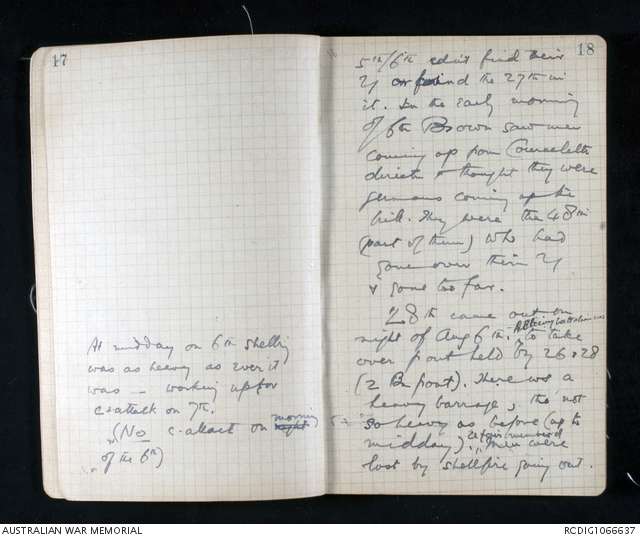 17
At midday on 6th shelling
was as heavy as ever it
was – working up for
c-attack on 7th.
(No c-attack on morning night
of the 6th)
18
5th/6th didnt find their
or found the 27th in
it. In the early morning
of 6th Brown saw men
coming up from Courcelette
directn & thought they were
Germans coming up the
hill. They were the 48th
(part of them) who had
gone over their
& gone too far.
28th came out on
night of Aug 6th. to take
over front held by 26 & 28
(2 Bn front). There was a
heavy barrage, tho not
so heavy as before (up to
midday). men were
lost by shellfire going out.
AUSTRALIAN WAR MEMORIAL
RCDIG1066637